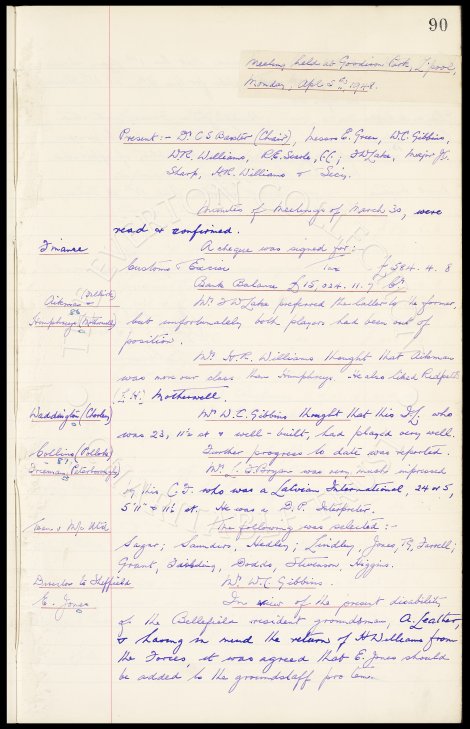 90
Meeting held at Goodison Park, L'pool,
Monday, Apl 5th 1948.
Present:- Dr. C S Baxter (Chair), Messrs E. Green, W.C. Gibbins,
W.R. Williams, R.E. Searle, ; F W Lake, Major
Sharp, H.R. Williams & Secy.
Minutes of Meetings of March 30, were
read & confirmed.
Finance A cheque was signed for:-
Customs & Excise tax £584. 4. 8
Bank Balance £15,024. 11. 7 Cr.
Aikman (Falkirk) Mr F W Lake preferred the latter to the former,
Humphreys (Motherwell) but unfortunately both players had been out of
position.
Mr. H.R. Williams thought that Aikman
was more our class than Humphreys. He also liked Redpath
R.H. Motherwell.
Waddington (Chorley) Mr W.C. Gibbins thought that this who
was 23, 11½ st & well-built, had played very well.
Collins (Pollok) Further progress to date was reported.
Freimanis (Peterborough) Mr. Bryan was very much impressed
by this C.F. who was a Latvian International, 24 or 5,
5'11" & 11½ st. He was a D.P. Interpreter.
Team v M/c Utd. The following was selected:-
Sagar; Saunders, Hedley; Lindley, Jones, T.G, Farrell;
Grant, Fielding, Dodds, Stevenson, Higgins.
Director to Sheffield Mr. W.C. Gibbins.
E. Jones In view of the present disability
of the Bellefield resident groundsman, A. Leather,
& having in mind the return of H Williams from
the Forces, it was agreed that E. Jones should
be added to the groundstaff pro tem.